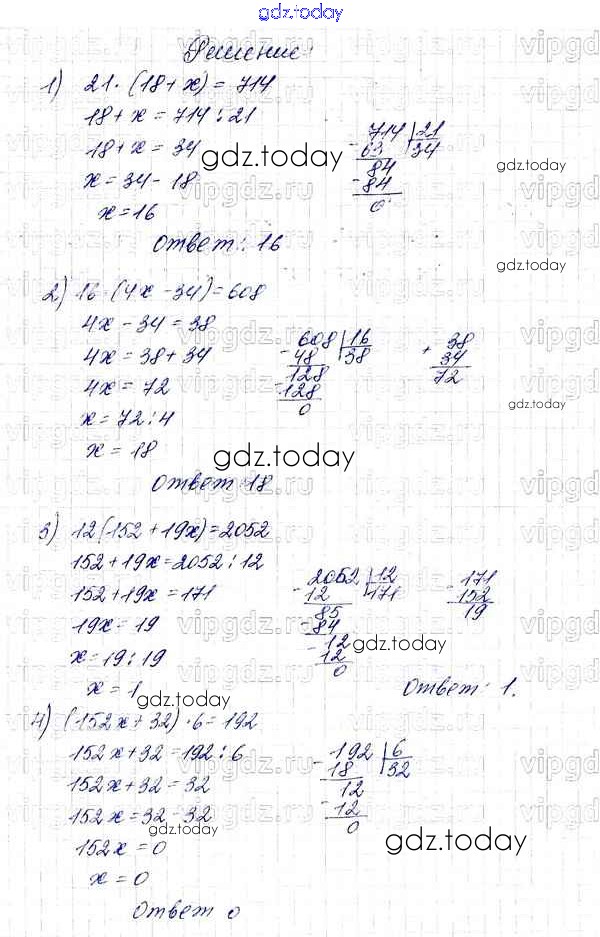 gdz.today
Решение:
1) 21 · (18 + x) = 714
18 + x = 714 : 21
18 + x = 34
x = 34 - 18
x = 16
- 714 | 21
63 34
84
- 84
0
gdz.today
gdz.today
Ответ: 16
gdz.today
2) 16 · (4x - 34) = 608
4x - 34 = 38
4x = 38 + 34
4x = 72
x = 72 : 4
x = 18
- 608 | 16
48 38
128
- 128
0
+ 38
34
72
gdz.today
gdz.today
Ответ 18
3) 12(152 + 19x) = 2052
152 + 19x = 2052 : 12
152 + 19x = 171
19x = 19
x = 19 : 19
x = 1
- 2052 | 12
12 171
85
- 84
12
- 12
0
- 171
152
19
gdz.today
gdz.today
Ответ: 1.
4) (152x + 32) · 6 = 192
152x + 32 = 192 : 6
152x + 32 = 32
152x = 32 - 32
152x = 0
x = 0
- 192 | 6
18 32
12
- 12
0
gdz.today
gdz.today
Ответ 0